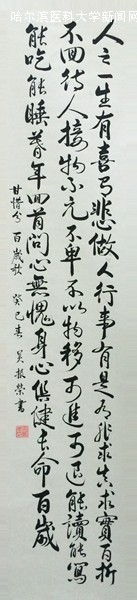 哈尔滨医科大学新闻网
人之一生有喜有悲做人行事有是有非求真求實百折
不回待人接物不亢不卑不以物移可進可退能讀能寫
能吃能睡年回首問心無愧身心俱健長命百歲
甘惜分百歲歌 癸巳春 吴振榮書